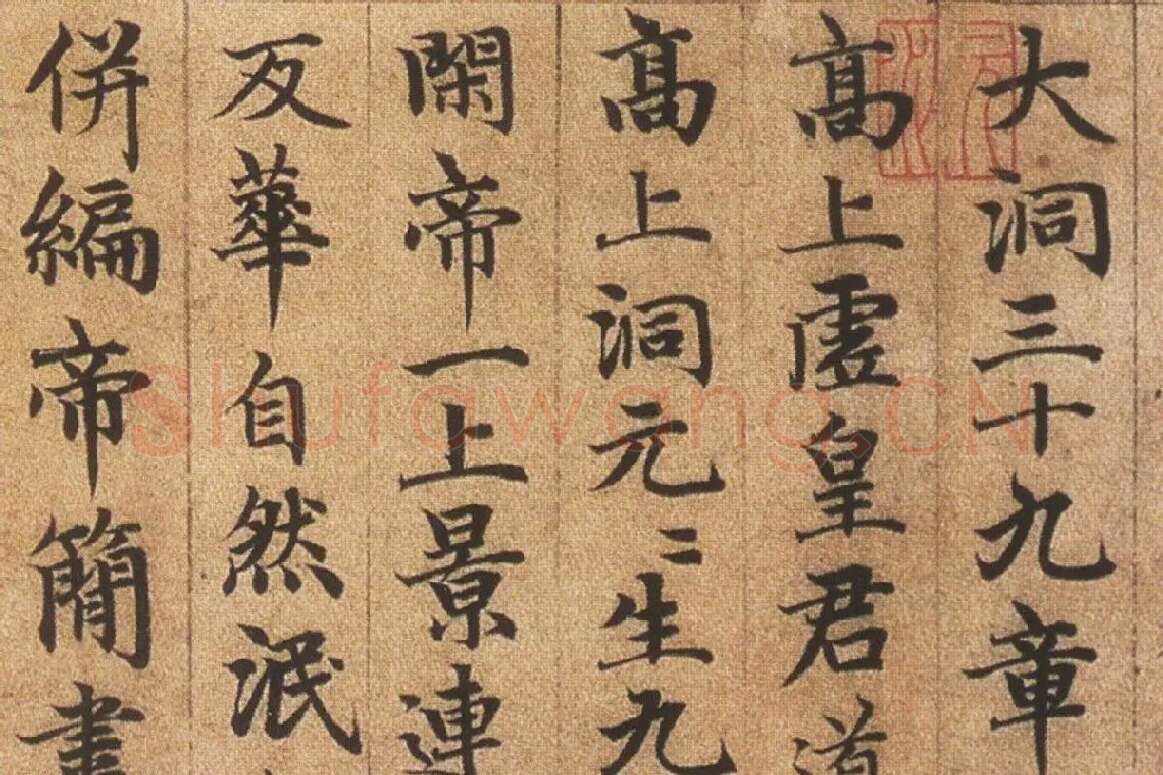 大洞三十九章
高上虛皇君道
高上洞元〻生九
閑帝一上景連
反華自然泯
併編帝簡書
shufawang.CN